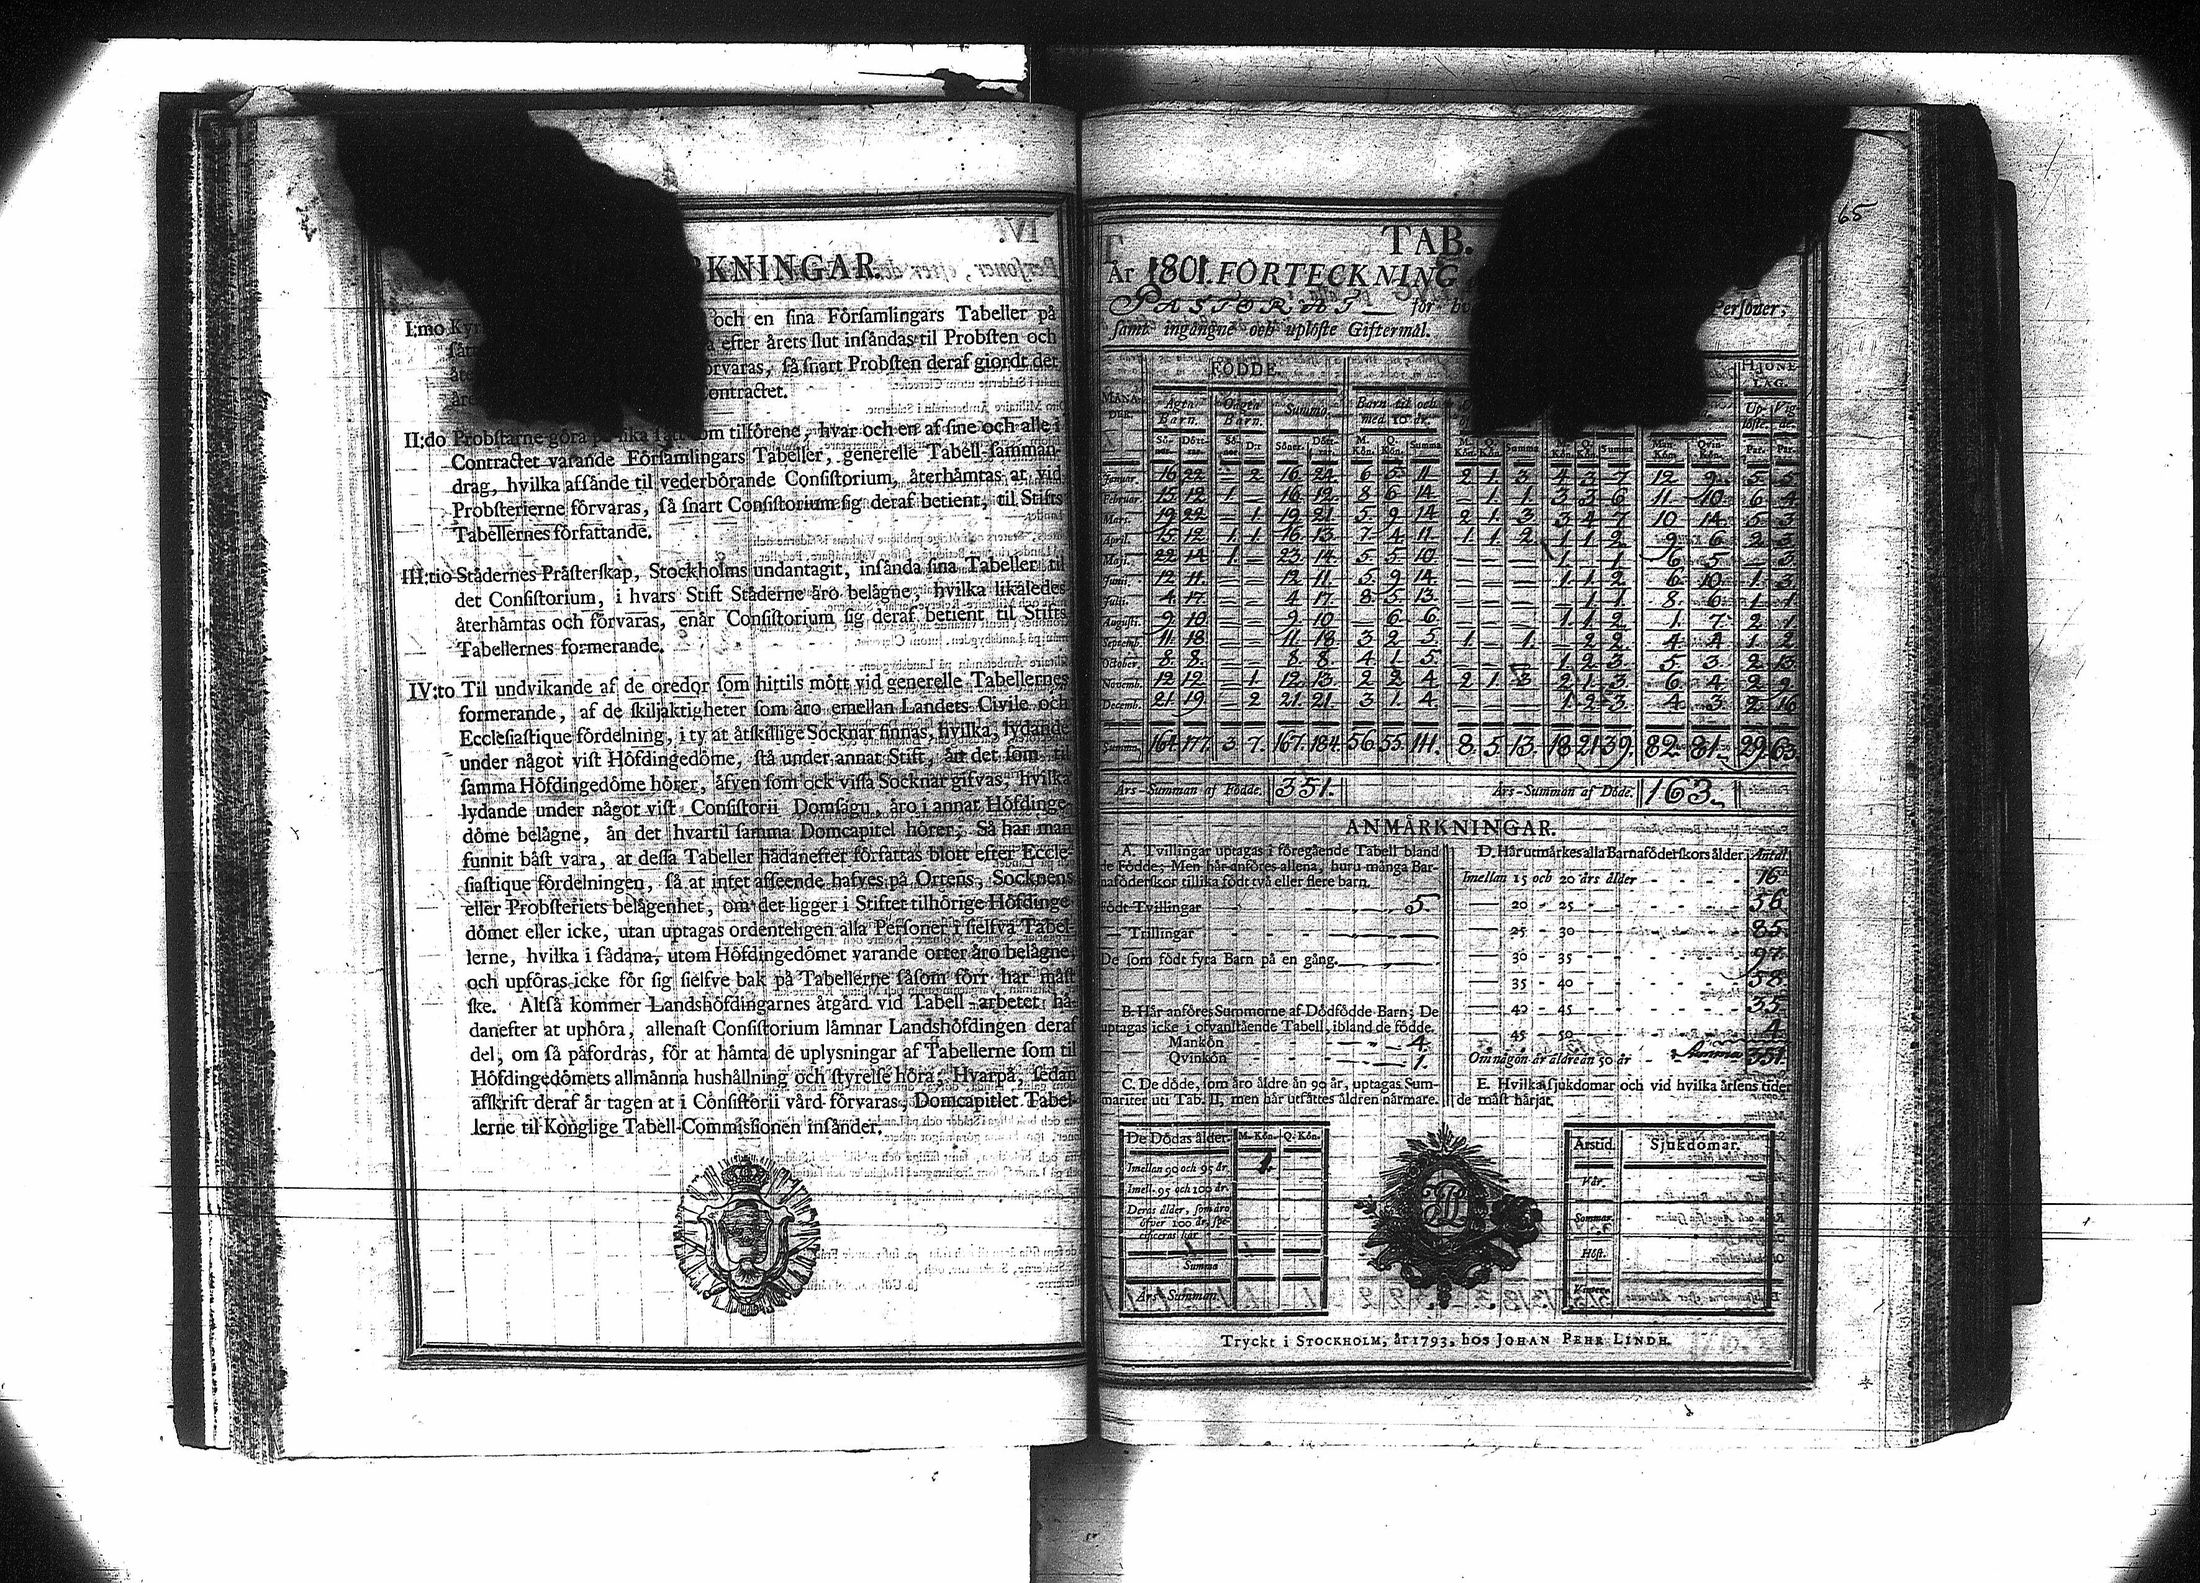 KNINGAR.
I:mo och en ſina Förſamlingars Tabeller på
efter årets ſlut inſåndas til Probſten och
förvaras, ſå ſnart Probſten deraf giordt det
Contractet.
II:do Probſtarne göra på lika ſätt ſom tilförene, hvar och en af ſine och alle i
Contractet varande Förſamlingars Tabeller, generelle Tabell-ſamman-
drag, hvilka afſånde til vederbörande Conſiſtorium, återhåmtas at vid
Probſterierne förvaras, ſå ſnart Conſiſtorium ſig deraf betient, til Stifts
Tabellernes författande.
III:tio Städernes Präſterſkap, Stockholms undantagit, inſånda ſina Tabeller til
det Conſiſtorium, i hvars Stift Städerne äro belägne, hvilka likaledes
återhåmtas och förvaras, enår Conſiſtorium ſig deraf betient til Stifts
Tabellernes formerande.
IV:to Til undvikande af de oredor ſom hittils mött vid generelle Tabellernes
formerande, af de ſkiljaktigheter ſom äro emellan Landets Civile och
Eccleſiaſtique fördelning, i ty at åtſkillige Socknar finnas, hvilka, lydande
under något viſt Höfdingedöme, ſtå under annat Stift, än det ſom til
ſamma Höfdingedöme hörer, äfven ſom ock viſſa Socknar gifvas, hvilka
lydande under något viſt Conſiſtorii Domſagu, äro i annat Höfdinge-
döme belägne, än det hvartil ſamma Domcapitel hörer; Så har man
funnit bäſt vara, at deſſa Tabeller hädanefter författas blott efter Eccle-
ſiaſtique fördelningen, ſå at intet afſeende hafves på Ortens, Socknens
eller Probſteriets belägenhet, om det ligger i Stiftet tilhörige Höfdinge-
dömet eller icke, utan uptagas ordenteligen alla Perſoner i ſielfva Tabel-
lerne, hvilka i ſådana, utom Höfdingedömet varande orter äro belägne,
och upföras icke för ſig ſielfve bak på Tabellerne ſåſom förr har måſt
ſke. Altſå kommer Landshöfdingarnes åtgärd vid Tabell-arbetet hä-
danefter at uphöra, allenaſt Conſiſtorium lämnar Landshöfdingen deraf
del, om ſå påfordras, för at hämta de uplysningar af Tabellerne ſom til
Höfdingedömets allmänna hushållning och ſtyrelſe höra; Hvarpå, ſedan
afſkrift deraf är tagen at i Conſiſtorii vård förvaras, Domcapitlet Tabel-
lerne til Konglige Tabell-Commiſſionen inſänder.
65
TAB.
År 1801. FÖRTECKNING
PASTORAT för Perſoner;
ſamt ingångne och uplöſte Giftermål.
FÖDDE. HJONE LAG.
MÅNADER. Ägta Barn. Oägta Barn. Summa. Barn til och med 10 år. Uplöſte. Vigde.
Söner. Döttrar. Söner. D:r Söner. Döttrar. M. Kön. Q. Kön. Summa M. Kön. Q. Kön. Summa M. Kön. Q. Kön. Summa Man Kön. Qvin Kön. Par. Par.
Januar. 16 22 = 2 16 24 6 5 11 2 1 3 4 3 7 12 9 5 5
Februar. 15 12 1 = 16 12 8 6 14 = 1 1 3 3 6 11 10 6 4
Mart. 19 22 = 1 19 21 5 9 14 2 1 3 3 4 7 10 14 5 3
April. 15 12 1 1 16 13 7 4 11 1 1 2 1 1 2 9 6 2 3
Maji. 22 14 1 = 23 14 5 5 10 = = = 1 = 1 6 5 = 3
Junii. 12 11 = = 12 11 5 9 14 = = = 1 1 2 6 10 1 3
Julii. 4 17 = = 4 17 8 5 13 = = = = 1 1 8 6 1 1
Auguſti. 9 10 = = 9 10 = 6 6 = = = 1 1 2 1 7 2 1
Septemb. 11 18 = = 11 18 3 2 5 1 = 1 = 2 2 4 4 1 2
October. 8 8 = = 8 8 4 1 5 = = = 1 2 3 5 3 2 13
Novemb. 12 12 = 1 12 13 2 2 4 2 1 3 2 1 3 6 4 2 9
Decemb. 21 19 = 2 21 21 3 1 4 = = = 1 2 3 4 3 2 16
Summa 164 177 3 7 167 184 56 55 111 8 5 13 18 21 39 82 81 29 63
Års-Summan af Födde. 351. Års-Summan af Döde. 163.
ANMÄRKNINGAR.
A. Tvillingar uptagas i föregående Tabell bland
de Födde; Men här anföres allena, huru många Bar-
naföderſkor tillika födt två eller flere barn.
födt Tvillingar 5
— Trillingar
De ſom födt fyra Barn på en gång.
B. Här anföres Summorne af Dödfödde Barn; De
uptagas icke i ofvanſtående Tabell, ibland de födde.
Mankön 4
Qvinkön 1.
C. De döde, ſom äro äldre än 90 år, uptagas Sum-
mariter uti Tab. II, men här utſättes åldren närmare.
D. Här utmärkes alla Barnaföderſkors ålder. Antal
Imellan 15 och 20 års ålder 16
20 - 25 56
25 - 30 85
30 - 35 97
35 - 40 58
40 - 45 35
45 - 50 4
Om någon är äldre än 50 år Summa 351
E. Hvilka ſjukdomar och vid hvilka årſens tider
de måſt härjat.
De Dödas ålder. M. Kön. Q. Kön.
Imellan 90 och 95 år. 1
Imell. 95 och 100 år.
Deras ålder, ſom äro
öfver 100 år, ſpe-
cificeras här
Summa
Års-Summan
Årstid. Sjukdomar.
Vår.
Sommar.
Höſt.
Vinter.
Tryckt i STOCKHOLM, år 1793, hos JOHAN PEHR LINDH.